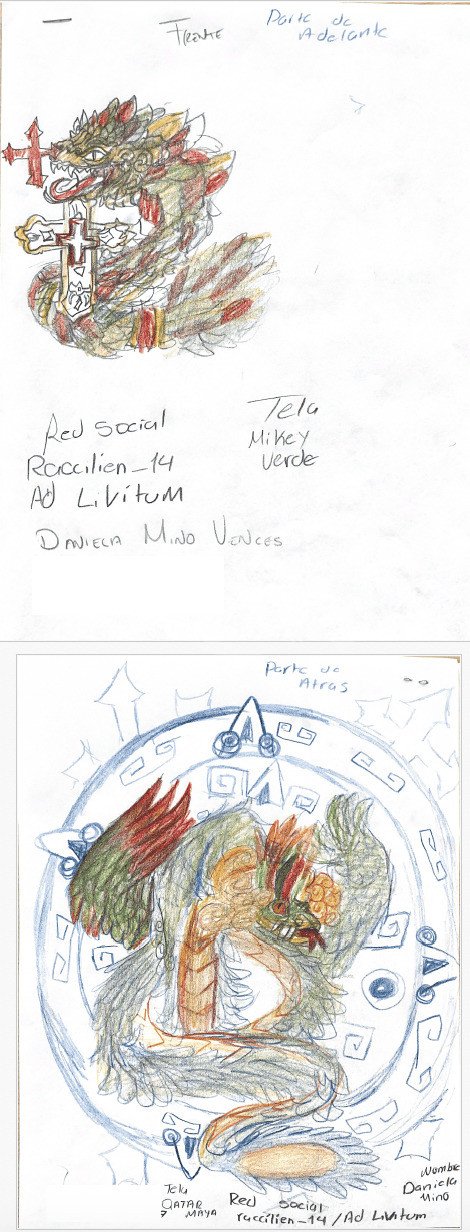 Frente
Parte de
Adelante
Red Social
Raccilien_14
Ad Livitum
Tela
Mikey
Verde
Daniela Mino Vences
Parte de
Atras
Tela
QATAR
7 MAYA
Red social
raccilien_14 / Ad Livitum
Nombre
Daniela
Mino